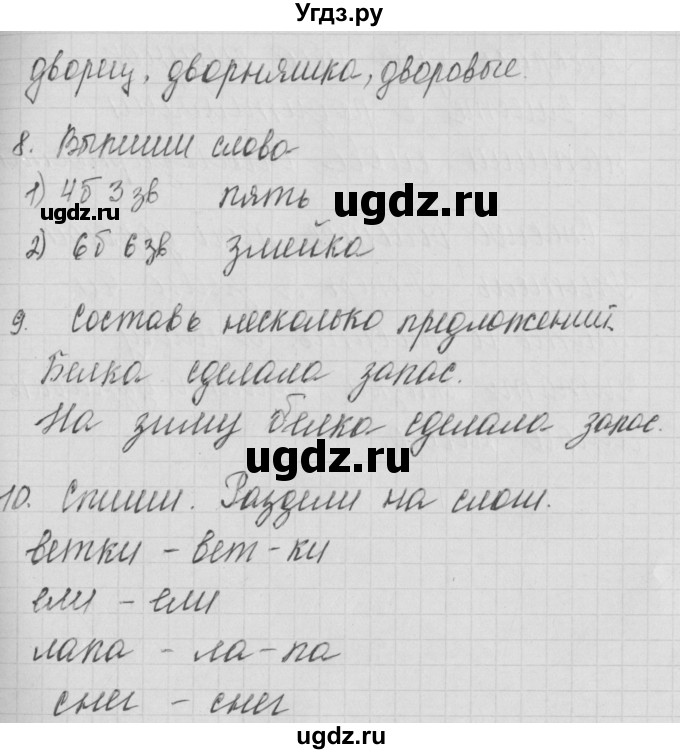 Угдз.ру
дворец, дворняшка, дворовые.
8. Выпиши слова
1) 4б 3зв пять
ugdz.ru
ugdz.ru
2) 6б 6зв змейка
9. Составь несколько предложений.
Белка сделала запас.
На зиму белка сделала запас.
ugdz.ru
10. Спиши. Раздели на слоги.
ветки - вет-ки
ели - ели
лапа - ла-па
снег - снег
ugdz.ru
ugdz.ru